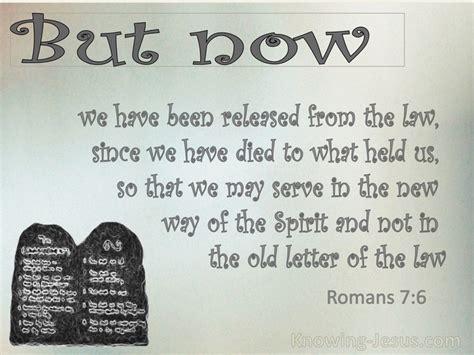 But now
we have been released from the law,
since we have died to what held us,
so that we may serve in the new
way of the Spirit and not in
the old letter of the law
Romans 7:6
Knowing-Jesus.com